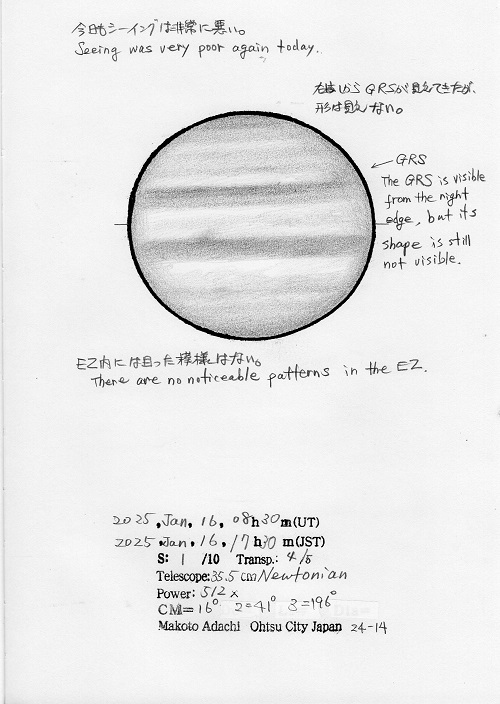 今日もシーイングは非常に悪い。
Seeing was very poor again today.
右端からGRSが見えてきたが、
形は見えない。
GRS
The GRS is visible
from the right
edge, but its
shape is still
not visible.
EZ内には目立った模様はない。
There are no noticeable patterns in the EZ.
2025.Jan.16.08h30m(UT)
2025.Jan.16.17h30m(JST)
S: 1 /10 Transp.: 4/5
Telescope:35.5cmNewtonian
Power: 512x
CM=16° 2=41° 3=196°
Makoto Adachi Ohtsu City Japan 24-14